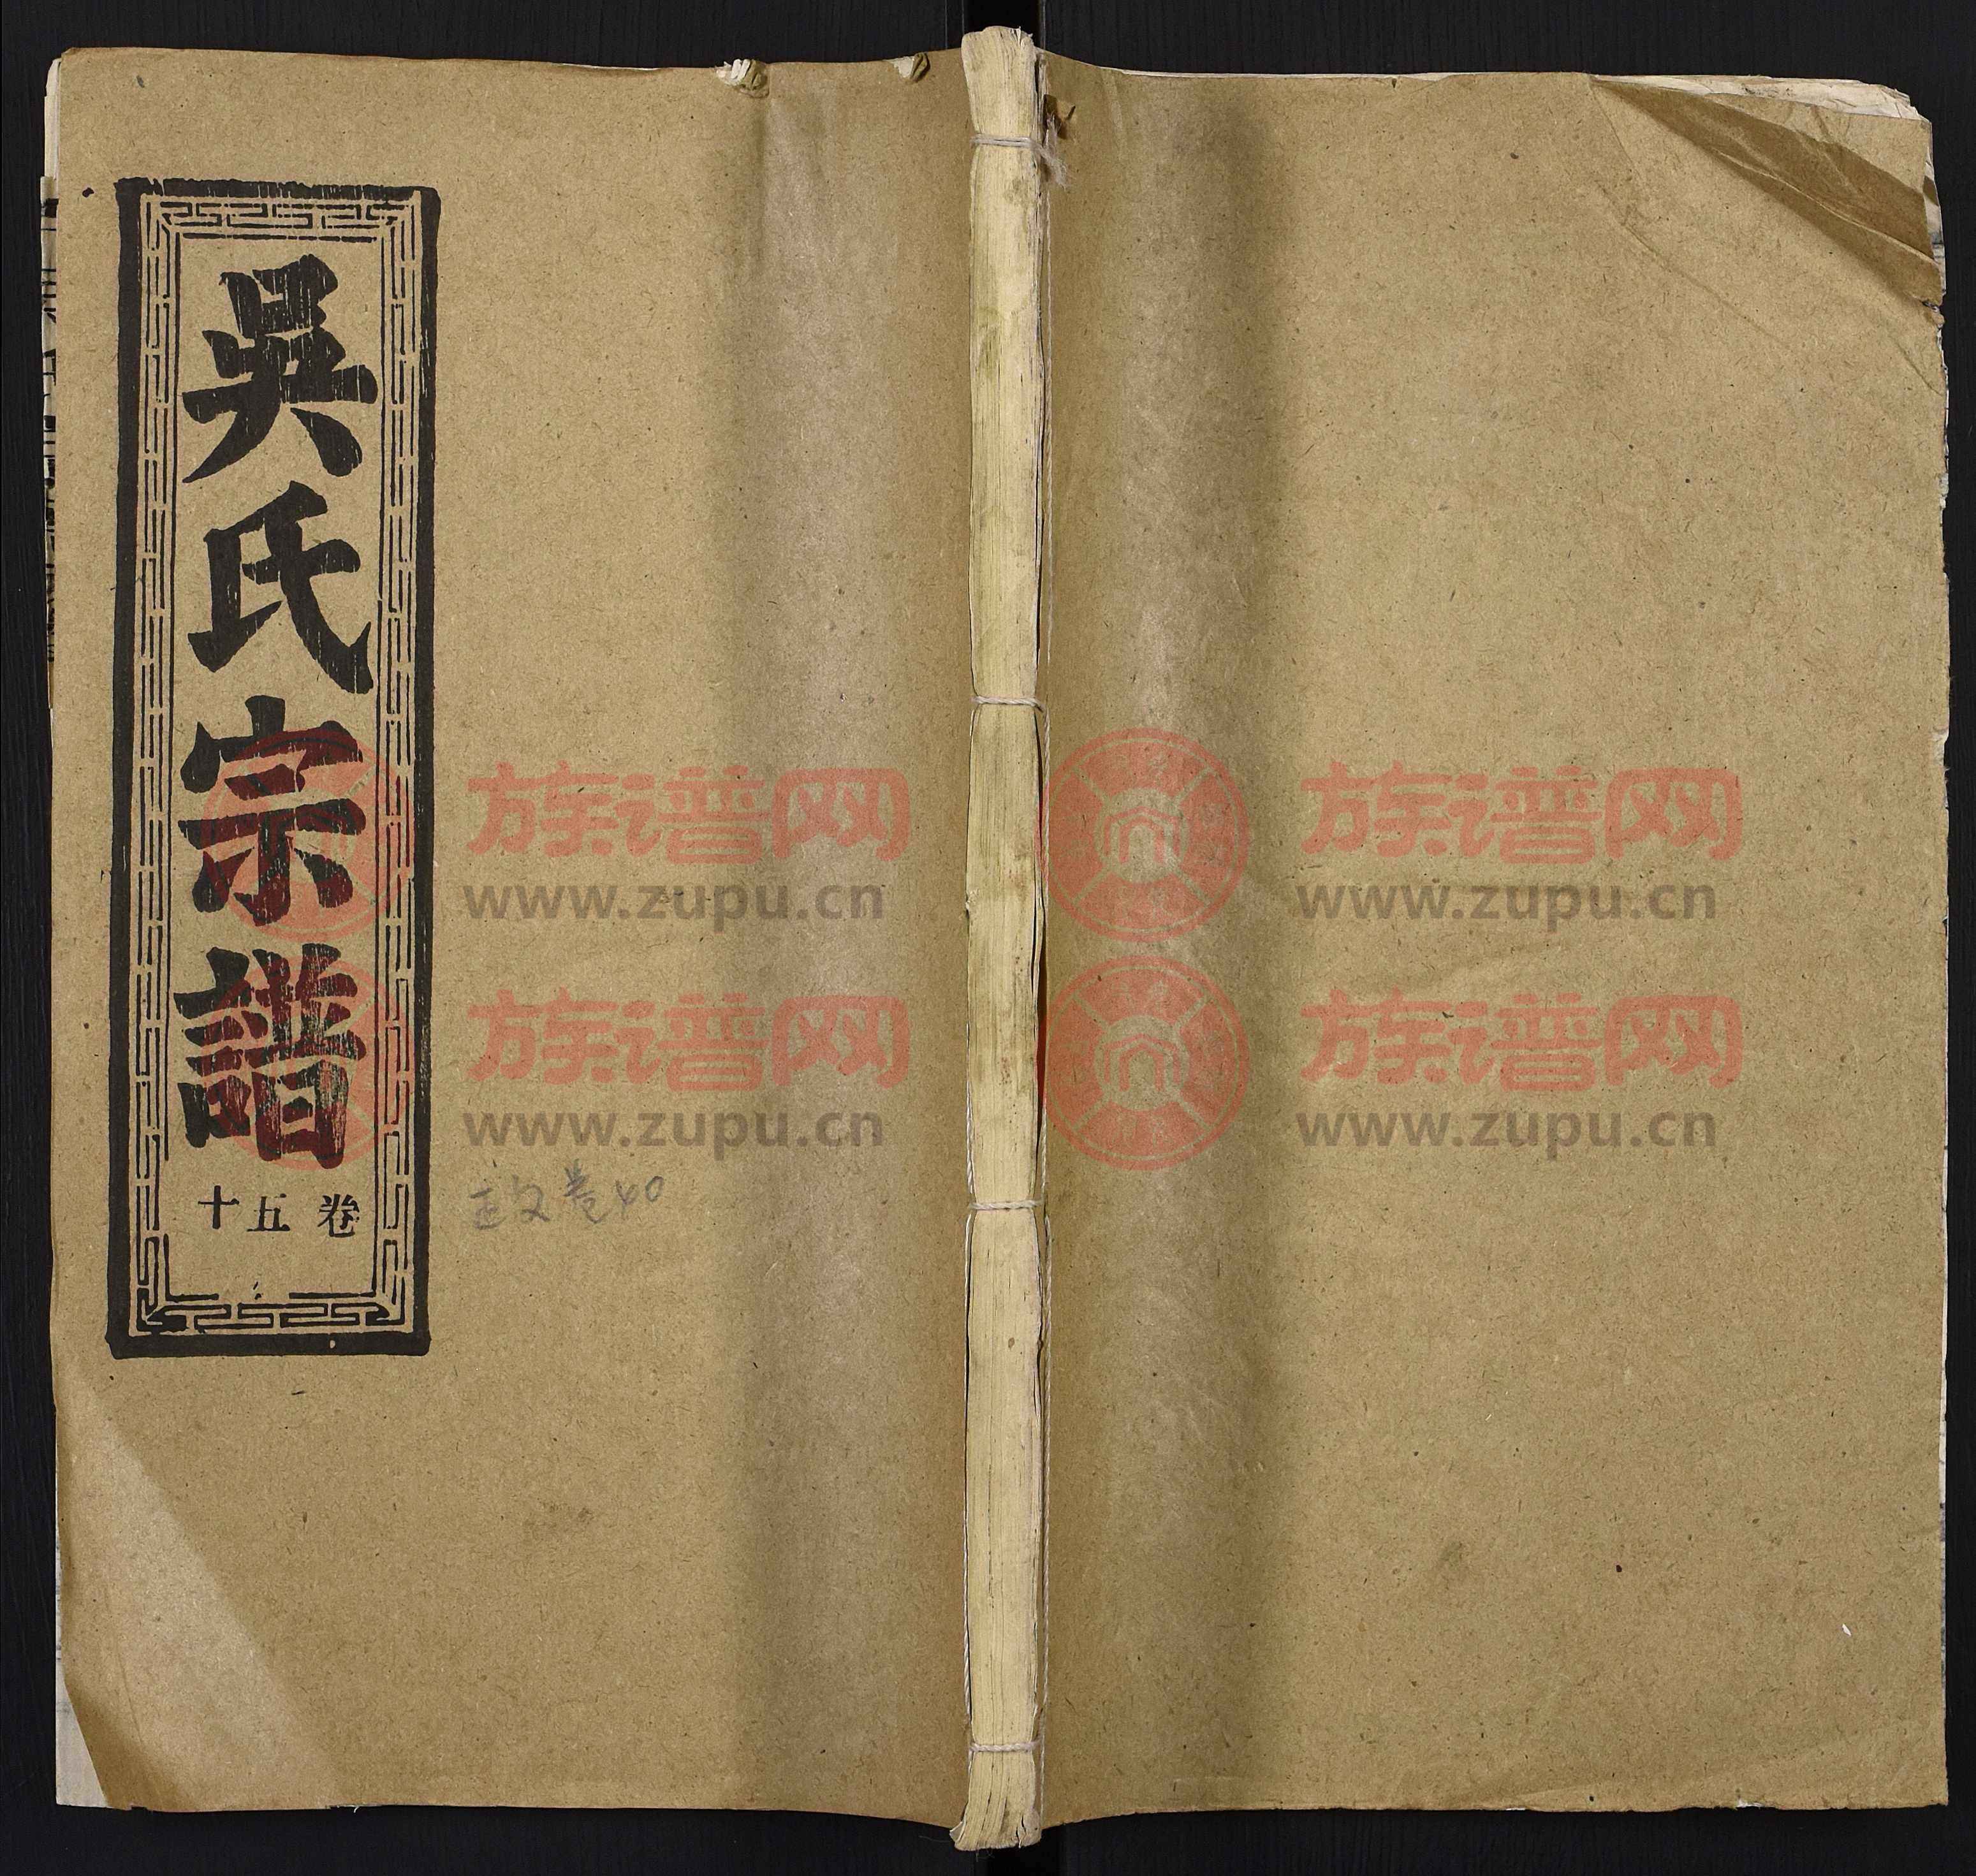 吳氏宗譜
卷五十
卷40
族谱网
www.zupu.cn
族谱网
www.zupu.cn
族谱网
www.zupu.cn
族谱网
www.zupu.cn